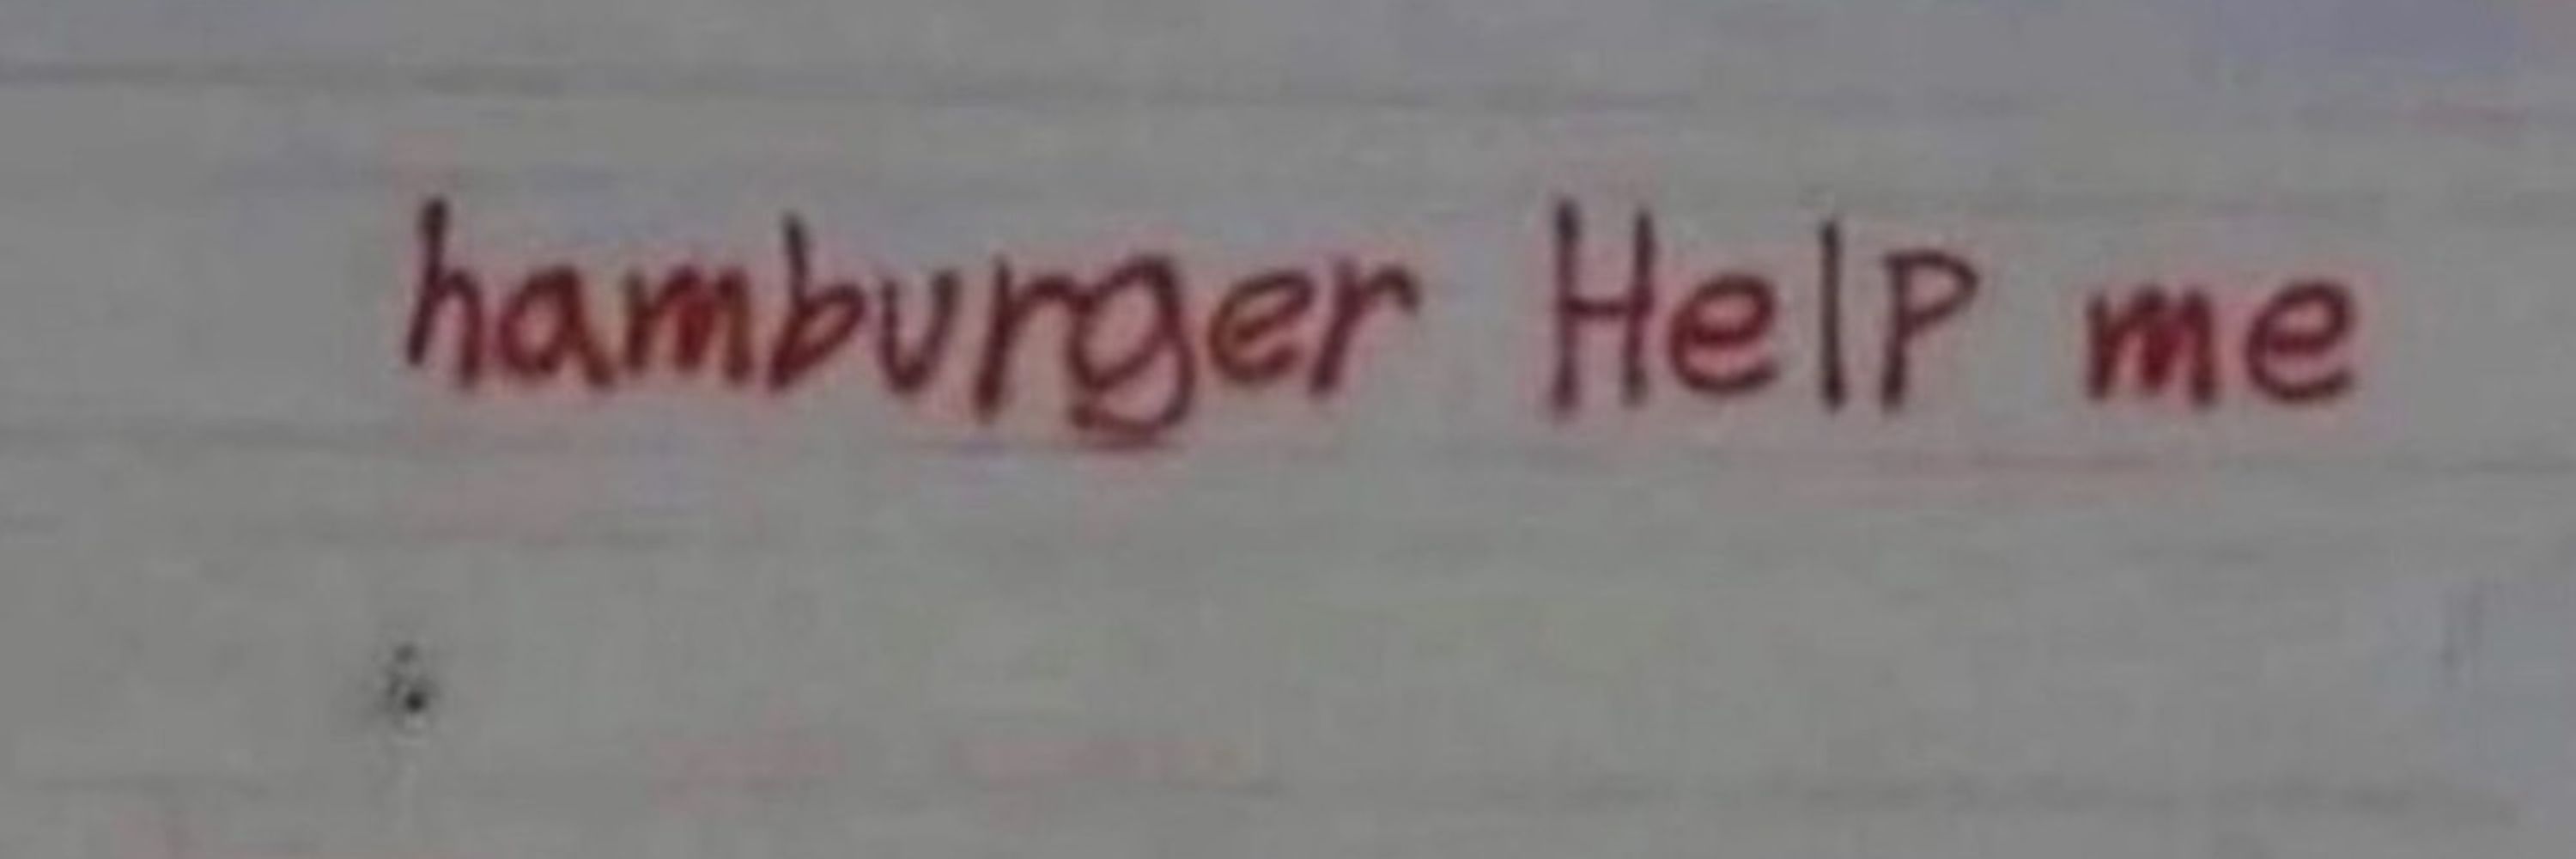 hamburger Help me